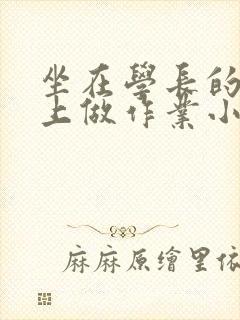 坐在學長的
上做作業小
麻麻原繪里依